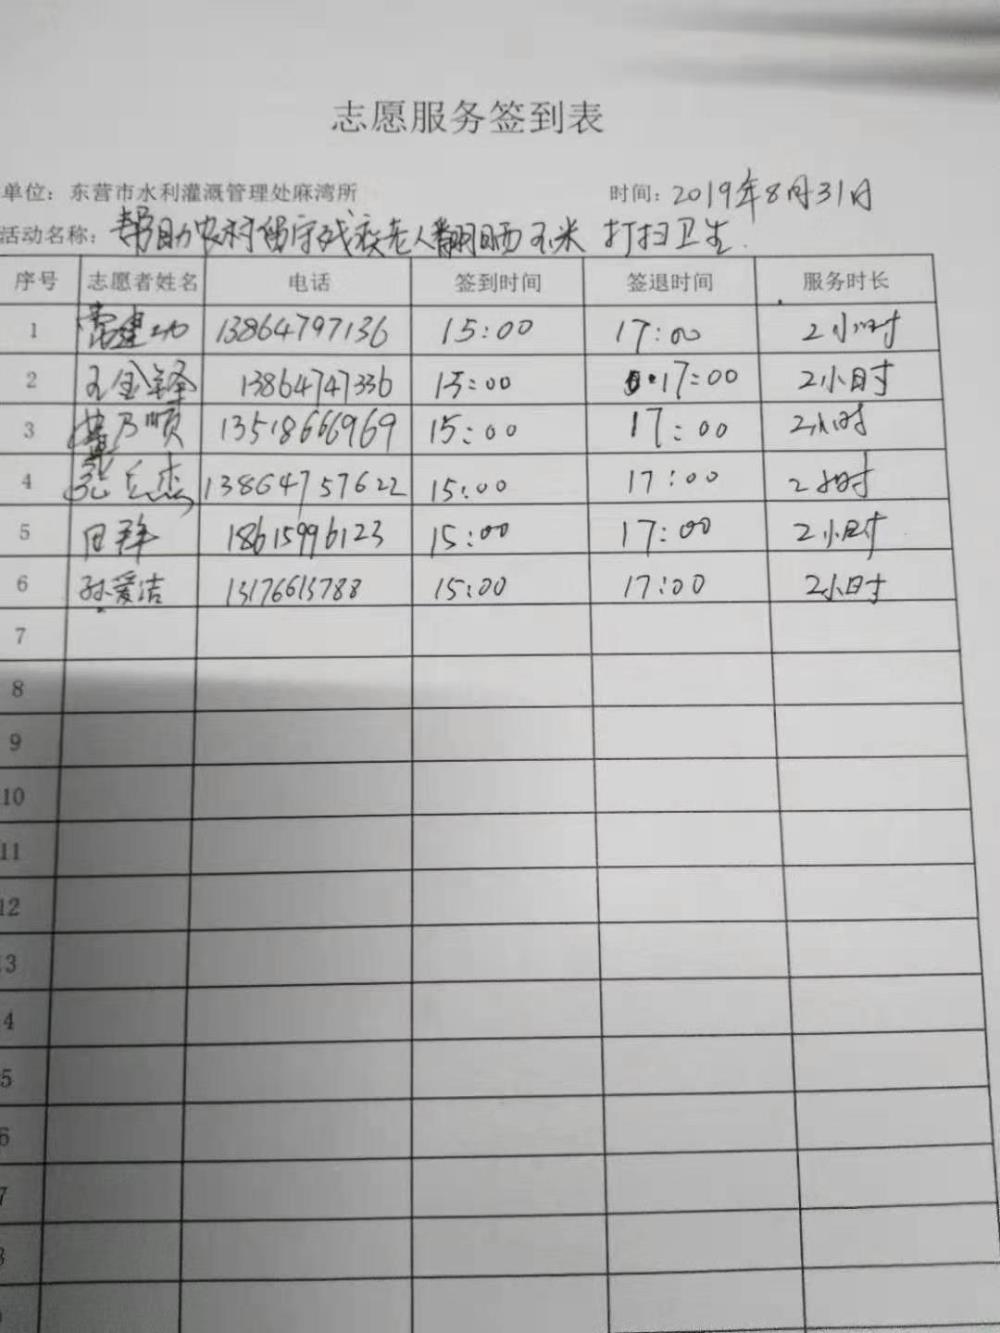 志愿服务签到表
单位：东营市水利灌溉管理处麻湾所 时间：2019年8月31日
活动名称：帮助农村留守残疾老人翻晒玉米 打扫卫生.
序号 志愿者姓名 电话 签到时间 签退时间 服务时长
1 常建功 13864797136 15:00 17:00 2小时
2 王金铎 13864747336 15:00 17:00 2小时
3 乃顺 13518666969 15:00 17:00 2小时
4 张兵杰 13864757622 15:00 17:00 2小时
5 田群 18615996123 15:00 17:00 2小时
6 孙爱洁 13176613788 15:00 17:00 2小时
7
8
9
10
11
12
3
4
5
6
7
8